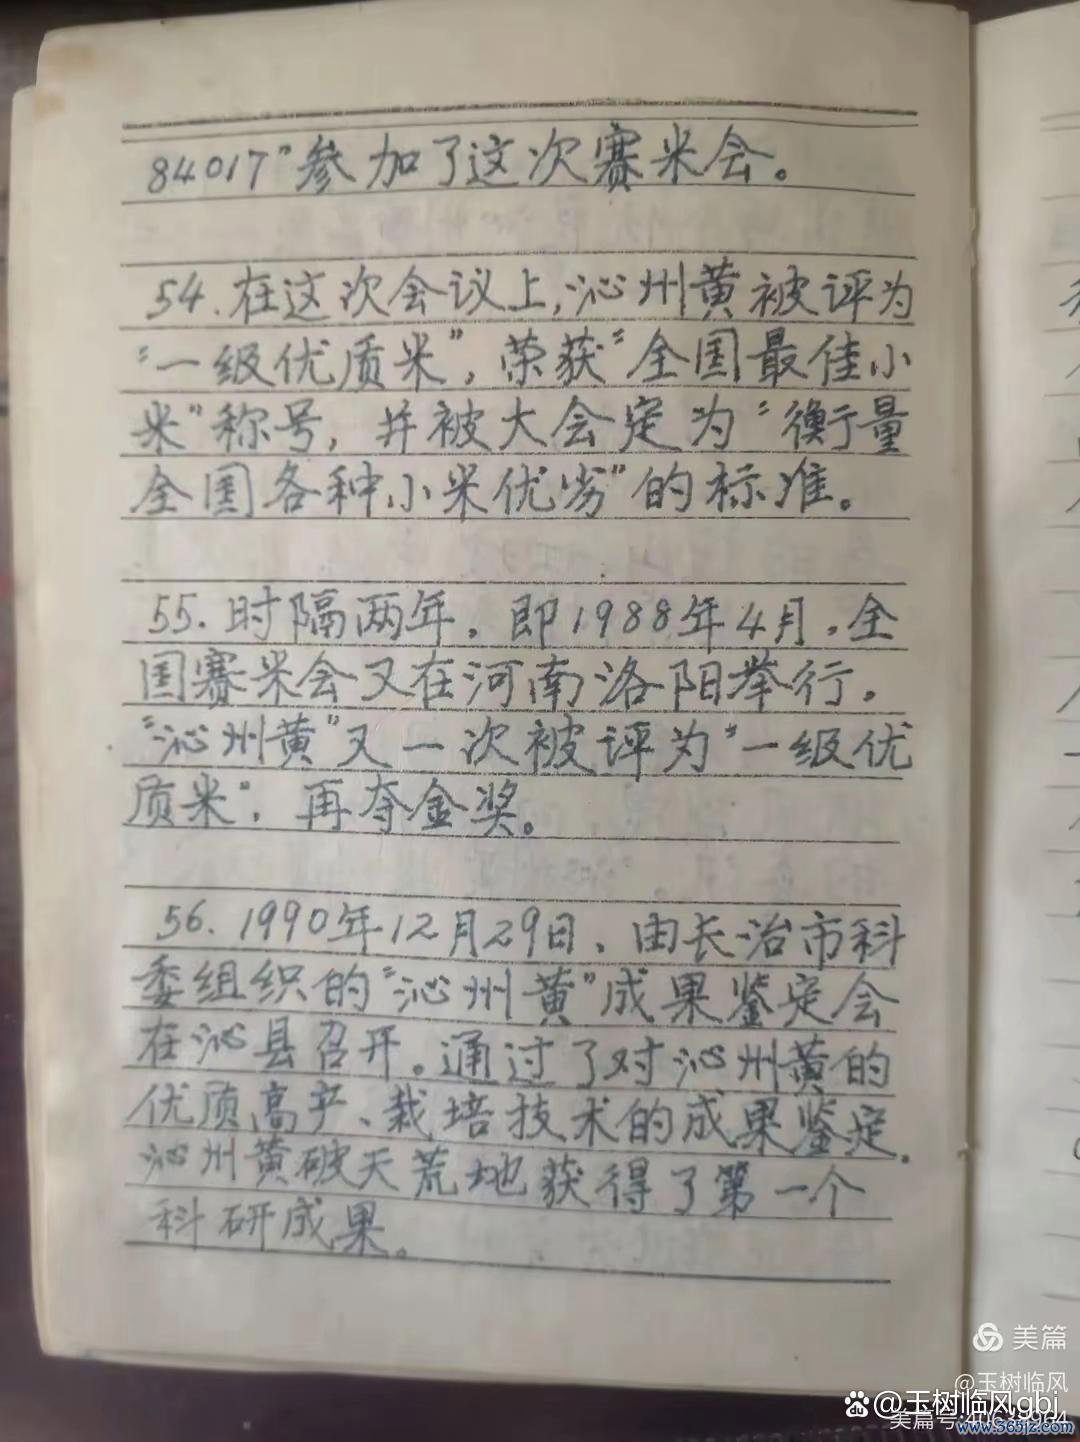 84017”参加了这次赛米会。
54.在这次会议上,沁州黄被评为
“一级优质米”,荣获“全国最佳小
米”称号,并被大会定为“衡量
全国各种小米优劣”的标准。
55.时隔两年,即1988年4月,全
国赛米会又在河南洛阳举行。
“沁州黄”又一次被评为“一级优
质米”,再夺金奖。
56.1990年12月29日、由长治市科
委组织的“沁州黄”成果鉴定会
在沁县召开。通过了对沁州黄的
优质高产、栽培技术的成果鉴定。
沁州黄破天荒地获得了第一个
科研成果。
美篇
@玉树临风
@玉树临风gbj
美篇号:
www.365jz.com